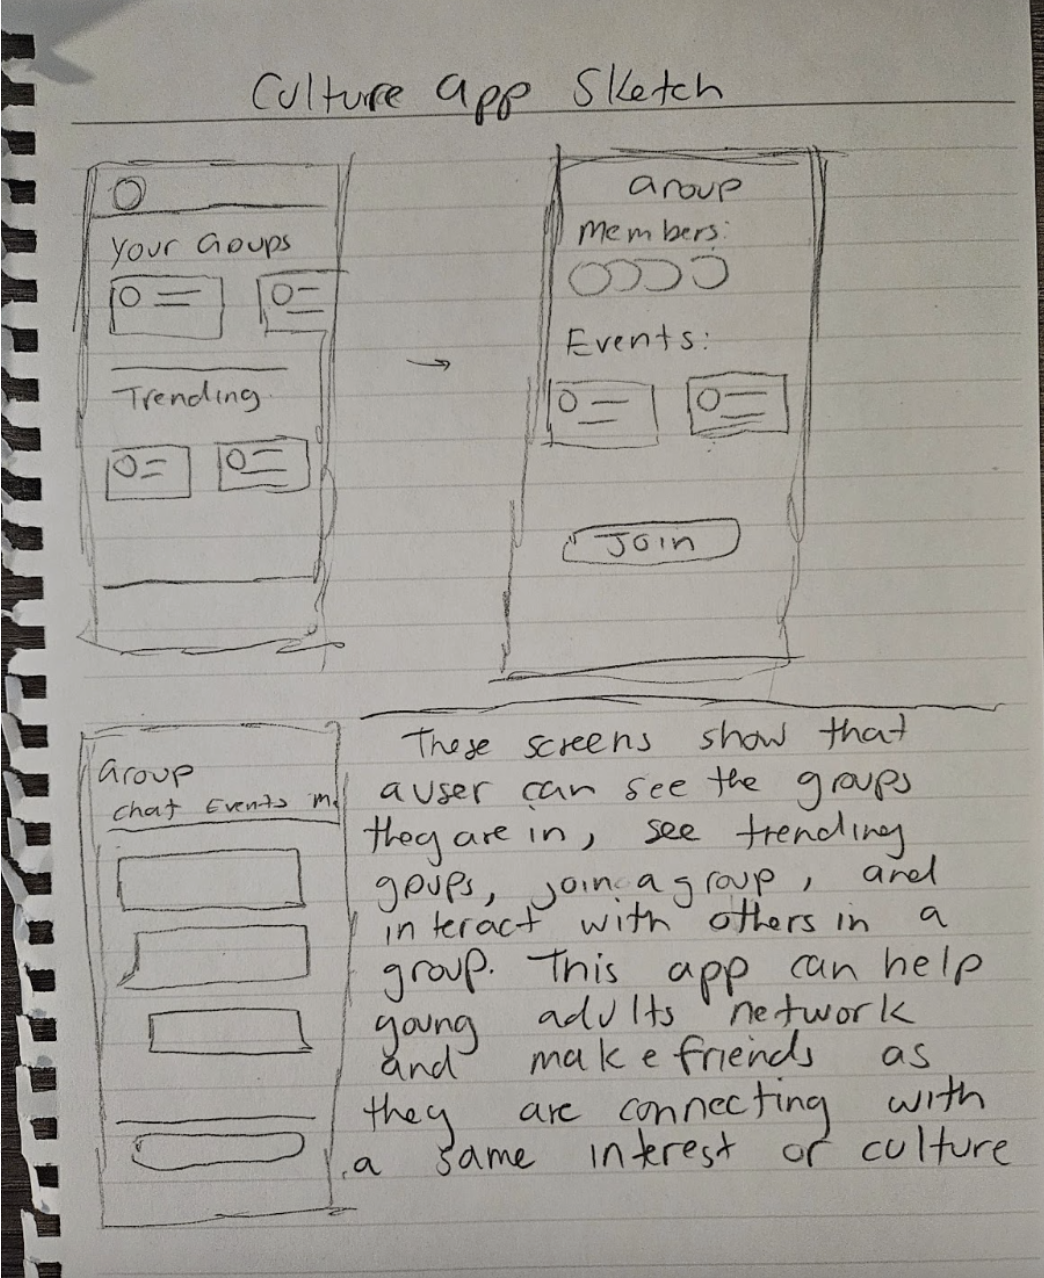 Culture app Sketch
Your Goups
Trending
Group
Members:
Events:
Join
Group
chat Events m
These screens show that
a user can see the groups
they are in, see trending
goups, join a group, and
interact with others in a
group. This app can help
young adults network
and make friends as
they are connecting with
a same interest or culture